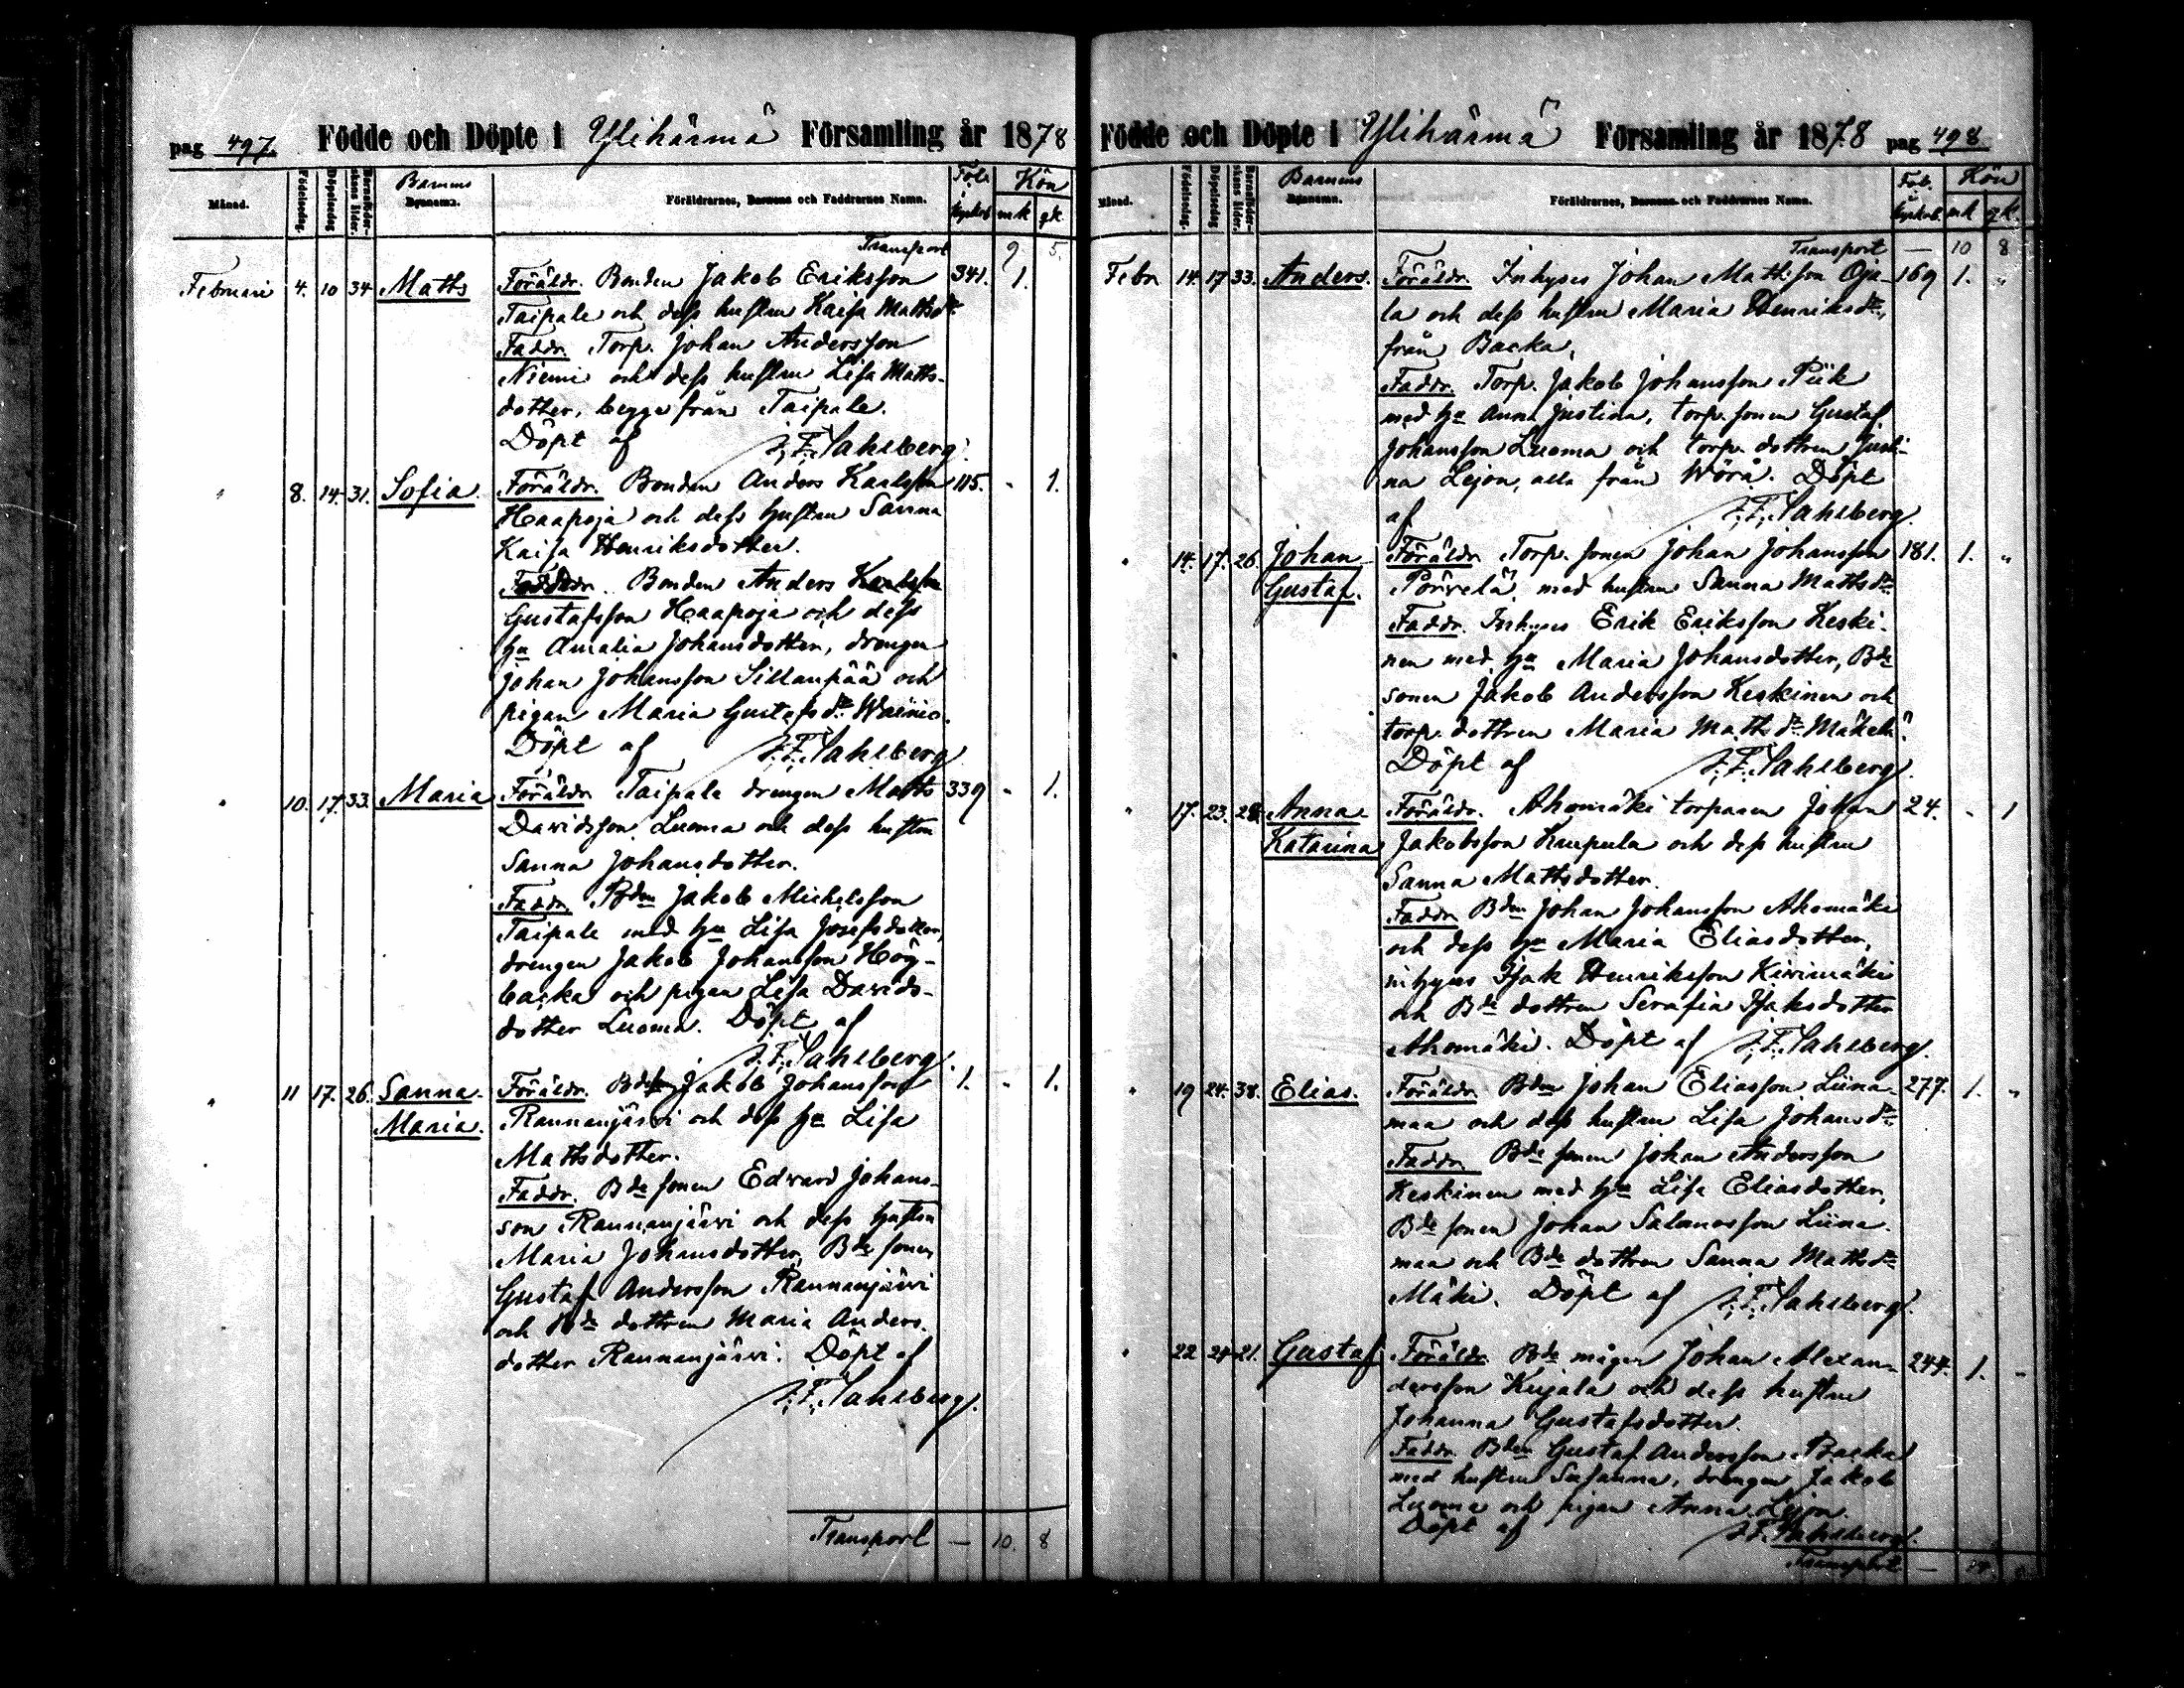 pag 497. Födde och Döpte i Ylihärmä Församling år 1878
Månad. Födelsedag. Döpelsedag Barnaföderskans ålder. Barnens Föräldrarnes, Barnens och Faddrarnes Namn. Kön
mk qk.
Transport 9 5.
Februari 4. 10 34 Matts Föräldr. Bonden Jakob Eriksson 341. 1.
Taipale och dess hustru Kaisa Mattsdr
Faddr. Torp. Johan Andersson
Niemi och dess hustru Lisa Matts-
dotter, begge från Taipale.
Döpt af J. F. Sahlberg.
" 8. 14. 31. Sofia. Föräldr. Bonden Anders Karlsson 115. " 1.
Haapoja och dess hustru Sanna
Kaisa Henriksdotter.
Faddr. Bonden Anders Karlsson
Gustafsson Haapoja och dess
hu Amalia Johansdotter, drengen
Johan Johansson Sillanpää och
pigan Maria Gustafsdr Wainio.
Döpt af J. F. Sahlberg
" 10. 17. 33. Maria Föräldr. Taipale drengen Matts 339 " 1.
Davidsson Luoma och dess hustru
Sanna Johansdotter.
Faddr. Bdn Jakob Michelsson
Taipale med hu Lisa Josefsdotter,
drengen Jakob Johansson Hög-
backa och pigan Lisa Davids-
dotter Luoma. Döpt af
J. F. Sahlberg.
" 11 17. 26. Sanna Föräldr. Jakob Johansson 1. " 1.
Maria. Rannanjärvi och dess hu Lisa
Mattsdotter.
Faddr. Bde sonen Edvard Johans-
son Rannanjärvi och dess hustru
Maria Johansdotter, Bde sonen
Gustaf Andersson Rannanjärvi
och Bde dottren Maria Anders-
dotter Rannanjärvi. Döpt af
J. F. Sahlberg.
Transport — 10. 8
Födde och Döpte i Ylihärmä Församling år 1878 pag 498
Månad. Födelsedag. Döpelsedag Barnaföderskans ålder. Barnens Föräldrarnes, Barnens och Faddrarnes Namn. Kön
mk qk.
Transport — 10 8
Febr 14. 17 33. Anders. Föräldr. Inhyses Johan Mattsson Oja- 169 1. "
la och dess hustru Maria Henriksdr,
från Backa.
Faddr. Torp. Jakob Johansson Piik
med hu Anna Justina, torp. sonen Gustaf
Johansson Luoma och torp. dottren Justi-
na Lejon, alla från Wörå. Döpt
af J. F. Sahlberg.
" 14. 17. 26. Johan Föräldr. Torp. sonen Johan Johansson 181. 1. "
Gustaf. Pörvelä med hustru Sanna Mattsdr
Faddr. Inhyses Erik Eriksson Keski-
nen med hu Maria Johansdotter, Bde
sonen Jakob Andersson Keskinen och
torp. dottren Maria Mattsdr Mäkelä.
Döpt af J. F. Sahlberg.
" 17. 23. 28. Anna Föräldr. Ahomäki torparen Johan 24. " 1
Katarina Jakobsson och dess hustru
Sanna Mattsdotter.
Faddr. Bdn Johan Johansson Ahomäki
och dess hu Maria Eliasdotter,
inhyses Isak Henriksson Kivimäki
och Bde dottren Serafia Isaksdotter
Ahomäki. Döpt af J. F. Sahlberg.
" 19 24. 38. Elias. Föräldr. Bdn Johan Eliasson Liina- 277. 1. "
maa och dess hustru Lisa Johansdr
Faddr. Bde sonen Johan Andersson
Keskinen med hu Lisa Eliasdotter,
Bde sonen Johan Salomosson Liina-
maa och Bde dottren Sanna Mattsdr
Mäki. Döpt af J. F. Sahlberg.
" 22 24 21. Gustaf Föräldr. Bde mågen Johan Alexan- 244. 1. "
dersson Kujala och dess hustru
Johanna Gustafsdotter.
Faddr. Bdn Gustaf Andersson Backa
med hustru Susanna, drengen Jakob
Luoma och pigan Anna Lejon.
Döpt af J. F. Sahlberg.
Transport —